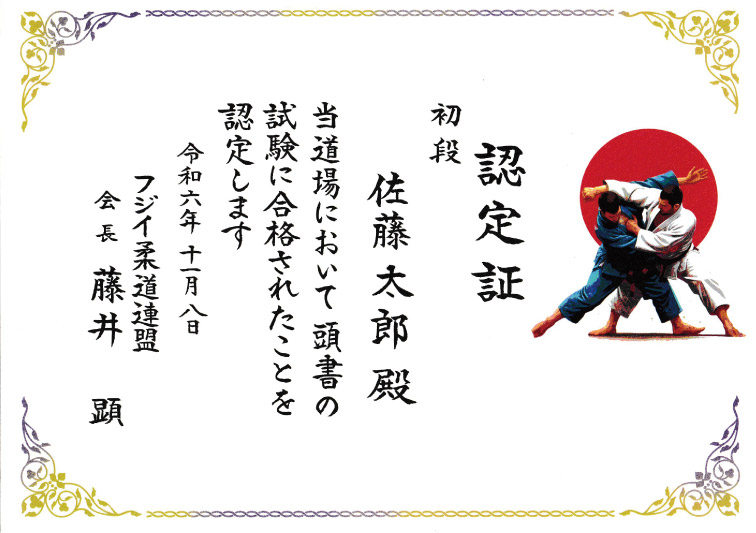 認定証
初段
佐藤太郎殿
当道場において 頭書の
試験に合格されたことを
認定します
令和六年 十一月 八日
フジイ柔道連盟
会長 藤井 顕